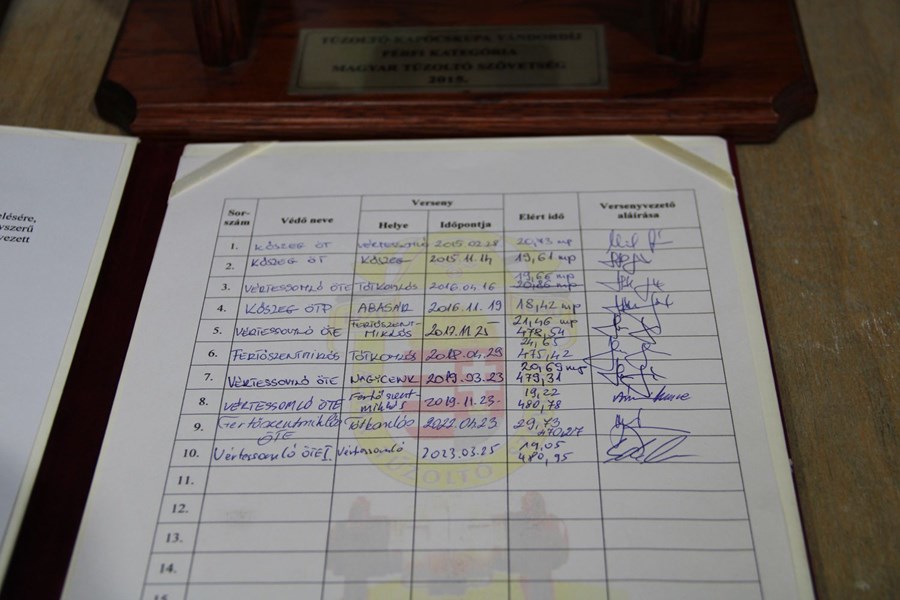 TŰZOLTÓ KAPOCSKUPA VÁNDORDÍJ
FÉRFI KATEGÓRIA
MAGYAR TŰZOLTÓ SZÖVETSÉG
2015.
elésére,
yszerű
vezett
Sor-szám Védő neve Verseny Helye Időpontja Elért idő Versenyvezető aláírása
1. KŐSZEG ÖT VÉRTESSOMLÓ 2015 02.28 20,73 mp
2. KŐSZEG ÖT KŐSZEG 2015.11.14 19,61 mp
3. VÉRTESSOMLÓ ÖTE TÓTKOMLÓS 2016.04.16 19,66 mp
4. KŐSZEG ÖTP ABASÁR 2016.11.19 18,42 mp
5. VÉRTESSOMLÓ ÖTE FERTŐSZENT-MIKLÓS 2017.11.25 21,46 mp 478,54
6. FERTŐSZENTMIKLÓS TÓTKOMLÓS 2018.04.29 24,65 475,42
7. VÉRTESSOMLÓ ÖTE NAGYCENK 2019.03.23 20,69 mp 479,31
8. VÉRTESSOMLÓ ÖTE Fertőszent-miklós 2019.11.23. 19,22 480,78
9. Fertőszentmiklós ÖTE Tótkomlós 2022.04.23 29,73
10. Vértessomló ÖTE I. Vértessomló 2023.03.25 19,05 480,95
11.
12.
13.
14.
15.
TŰZOLTÓ